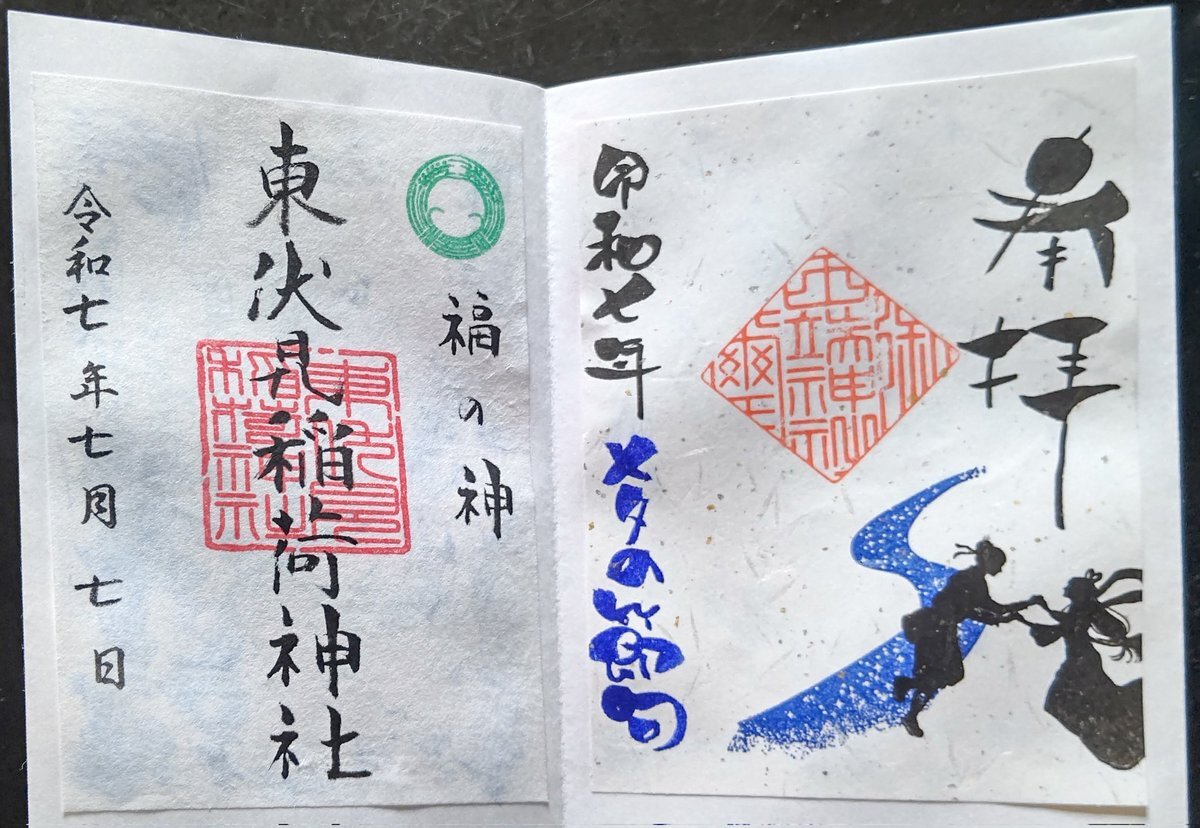 奉拝
令和七年
七夕の節句
福の神
東伏見稲荷神社
令和七年七月七日